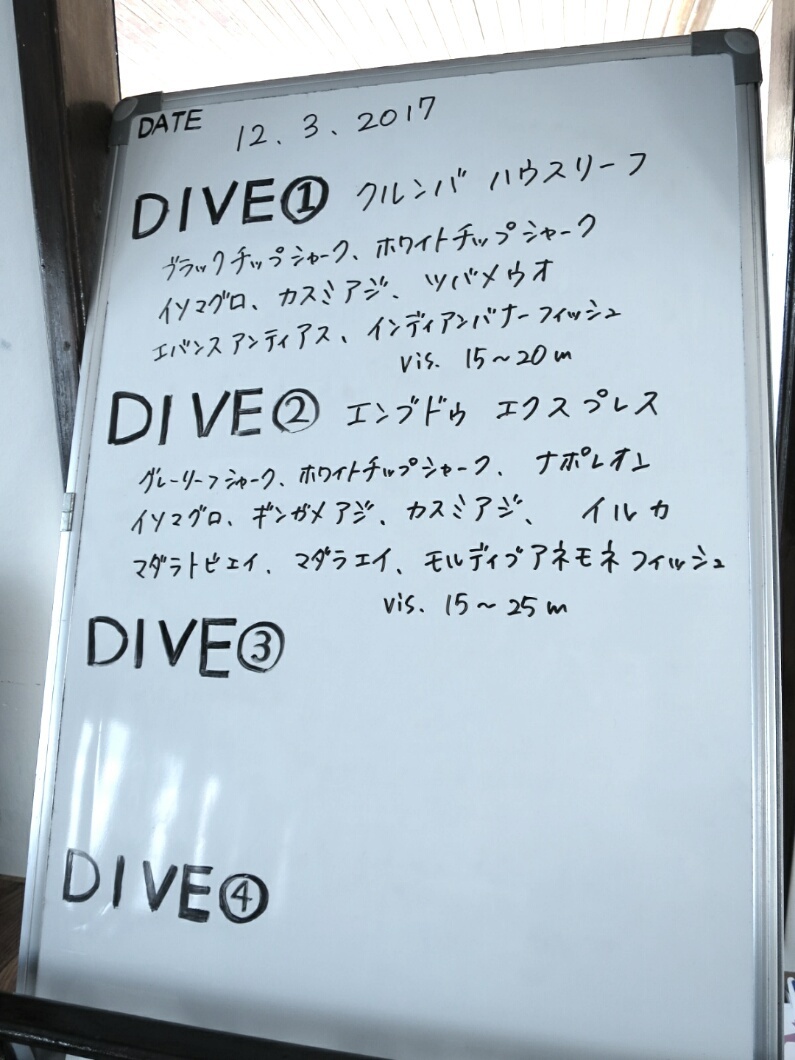 DATE 12.3.2017
DIVE① クルンバ ハウスリーフ
ブラックチップシャーク、ホワイトチップシャーク
イソマグロ、カスミアジ、ツバメウオ
エバンスアンティアス、インディアンバナーフィッシュ
vis. 15~20m
DIVE② エンブドゥ エクスプレス
グレーリーフシャーク、ホワイトチップシャーク、ナポレオン
イソマグロ、ギンガメアジ、カスミアジ、イルカ
マダラトビエイ、マダラエイ、モルディブアネモネフィッシュ
vis. 15~25m
DIVE③
DIVE④